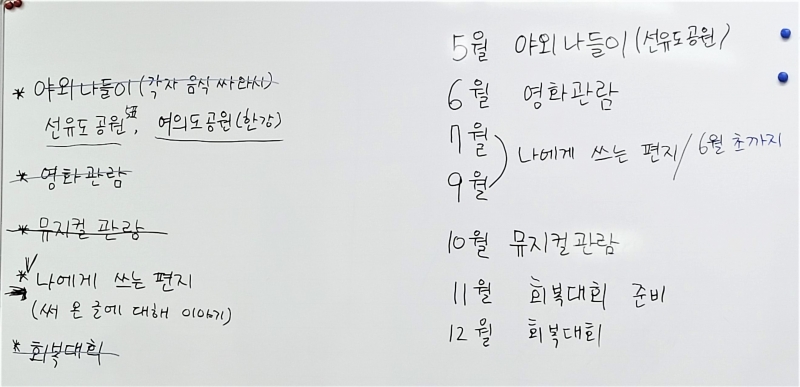 * 야외 나들이 (각자 음식 싸와서)
선유도공원 5표, 여의도공원(한강)
* 영화관람
* 뮤지컬 관람
* 나에게 쓰는 편지
(써 온 글에 대해 이야기)
* 회복대회
5월 야외 나들이 (선유도공원)
6월 영화관람
7월
9월
나에게 쓰는 편지/6월 초까지
10월 뮤지컬관람
11월 회복대회 준비
12월 회복대회